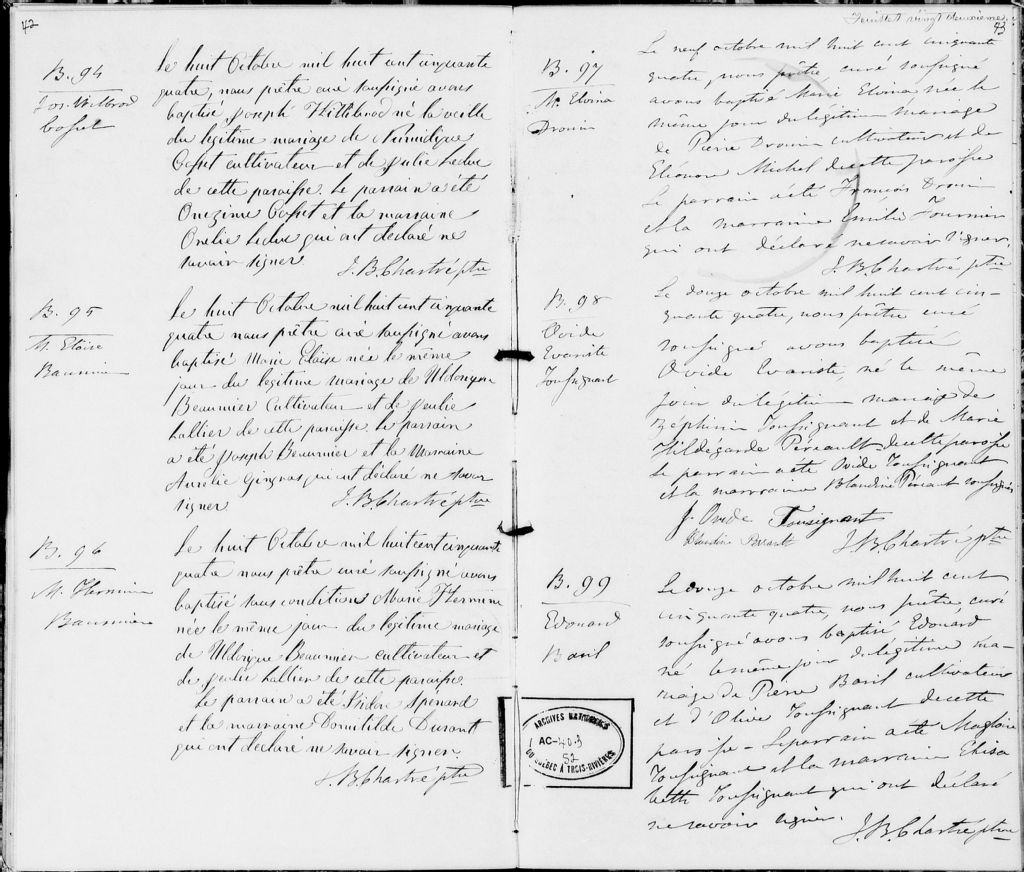 42
B. 94
Jos. Wilbrod
Cosset
Le huit Octobre mil huit cent cinquante
quatre, nous prêtre curé soussigné avons
baptisé Joseph Willibrod né la veille
du légitime mariage de Numidique
Cosset cultivateur et de Julie Leduc
de cette paraisse. Le parrain a été
Onezime Cosset et la marraine
Onelie Leduc qui ont déclaré ne
savoir signer
J. B. Chartré ptre
B. 95
M. Eloise
Le huit Octobre mil huit cent cinquante
quatre nous prêtre curé soussigné avons
baptisé Marie Eloise née le même
jour du legitime mariage de
Beaumier Cultivateur et de Julie
Lallier de cette paraisse. Le parrain
a été Joseph Beaumier et la Marraine
Aurélie Gingras qui ont déclaré ne savoir
signer
J. B. Chartré ptre
B. 96
M. Hermine
Beaumier
Le huit Octobre mil huit cent cinquante
quatre nous prêtre curé soussigné avons
baptisé sous condition Marie Hermine
née le même jour du legitime mariage
de Beaumier cultivateur et
de Julie Lallier de cette paraisse.
Le parrain a été Isidore Spénard
et la marraine Domitilde Durant
qui ont déclaré ne savoir signer.
J. B. Chartré ptre
Feuillet vingt deuxième
43
B. 97
M. Elvina
Drouin
Le neuf octobre mil huit cent cinquante
quatre, nous prêtre, curé soussigné
avons baptisé Marie Elvina née le
même jour du légitime mariage
de Pierre Drouin cultivateur et de
Eléonore Michel de cette paroisse
Le parrain a été François Drouin
et la marraine Emilie Fournier
qui ont déclaré ne savoir signer.
J. B. Chartré ptre
B. 98
Ovide
Evariste
Tousignant
Le douze octobre mil huit cent cin-
quante quatre, nous prêtre curé
soussigné avons baptisé
Ovide Evariste né le même
jour du légitime mariage de
Zéphirin Tousignant et de Marie
Hildégarde Pérault de cette paroisse
Le parrain a été Ovide Tousignant
et la marraine Blandine Pérault soussignés
J. Ovide Tousignant
Blandine Perault
J. B. Chartré ptre
B. 99
Edouard
Baril
Le douze octobre mil huit cent
cinquante quatre, nous prêtre, curé
soussigné avons baptisé Edouard
né le même jour du légitime ma-
riage de Pierre Baril cultivateur
et d'Olive Tousignant de cette
paroisse - Le parrain a été Magloire
Tousignant et la marraine Elisa
beth Tousignant qui ont déclaré
ne savoir signer.
J. B. Chartré ptre
ARCHIVES NATIONALES
AC-403
52
DU QUÉBEC À TROIS-RIVIÈRES